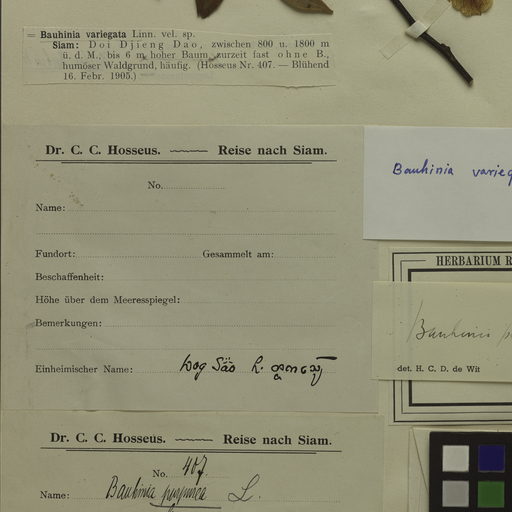 = Bauhinia variegata Linn. vel. sp.
Siam: Doi Djieng Dao, zwischen 800 u. 1800 m
ü. d. M., bis 6 m hoher Baum, zurzeit fast ohne B.,
humöser Waldgrund, häufig. (Hosseus Nr. 407. — Blühend
16. Febr. 1905.)
Dr. C. C. Hosseus. Reise nach Siam.
No.
Name:
Fundort: Gesammelt am:
Beschaffenheit:
Höhe über dem Meeresspiegel:
Bemerkungen:
Einheimischer Name:
Dr. C. C. Hosseus. Reise nach Siam.
No. 407.
Name: Bauhinia purpurea L.
Bauhinia varieg
HERBARIUM R
Bauhinia p
det. H. C. D. de Wit